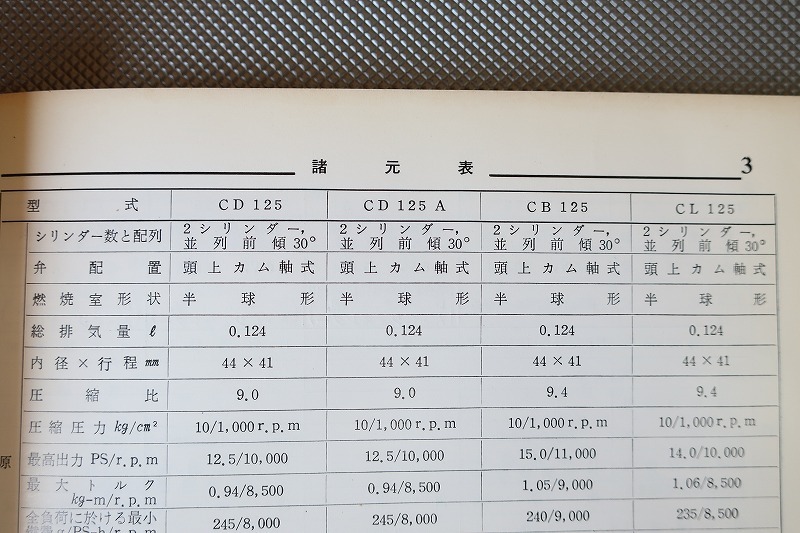 諸元表 3
型式 CD 125 CD 125 A CB 125 CL 125
シリンダー数と配列 2シリンダー, 並列前傾30° 2シリンダー, 並列前傾30° 2シリンダー, 並列前傾30° 2シリンダー, 並列前傾30°
弁配置 頭上カム軸式 頭上カム軸式 頭上カム軸式 頭上カム軸式
燃焼室形状 半球形 半球形 半球形 半球形
総排気量 ℓ 0.124 0.124 0.124 0.124
内径×行程 mm 44 × 41 44 × 41 44 × 41 44 × 41
圧縮比 9.0 9.0 9.4 9.4
圧縮圧力 kg/cm² 10/1,000 r.p.m 10/1,000 r.p.m 10/1,000 r.p.m 10/1,000 r.p.m
原 最高出力 PS/r.p.m 12.5/10,000 12.5/10,000 15.0/11,000 14.0/10.000
最大トルク kg-m/r.p.m 0.94/8,500 0.94/8,500 1.05/9,000 1.06/8,500
全負荷に於ける最小 245/8,000 245/8,000 240/9,000 235/8,500
g/PS-h/r.p.m